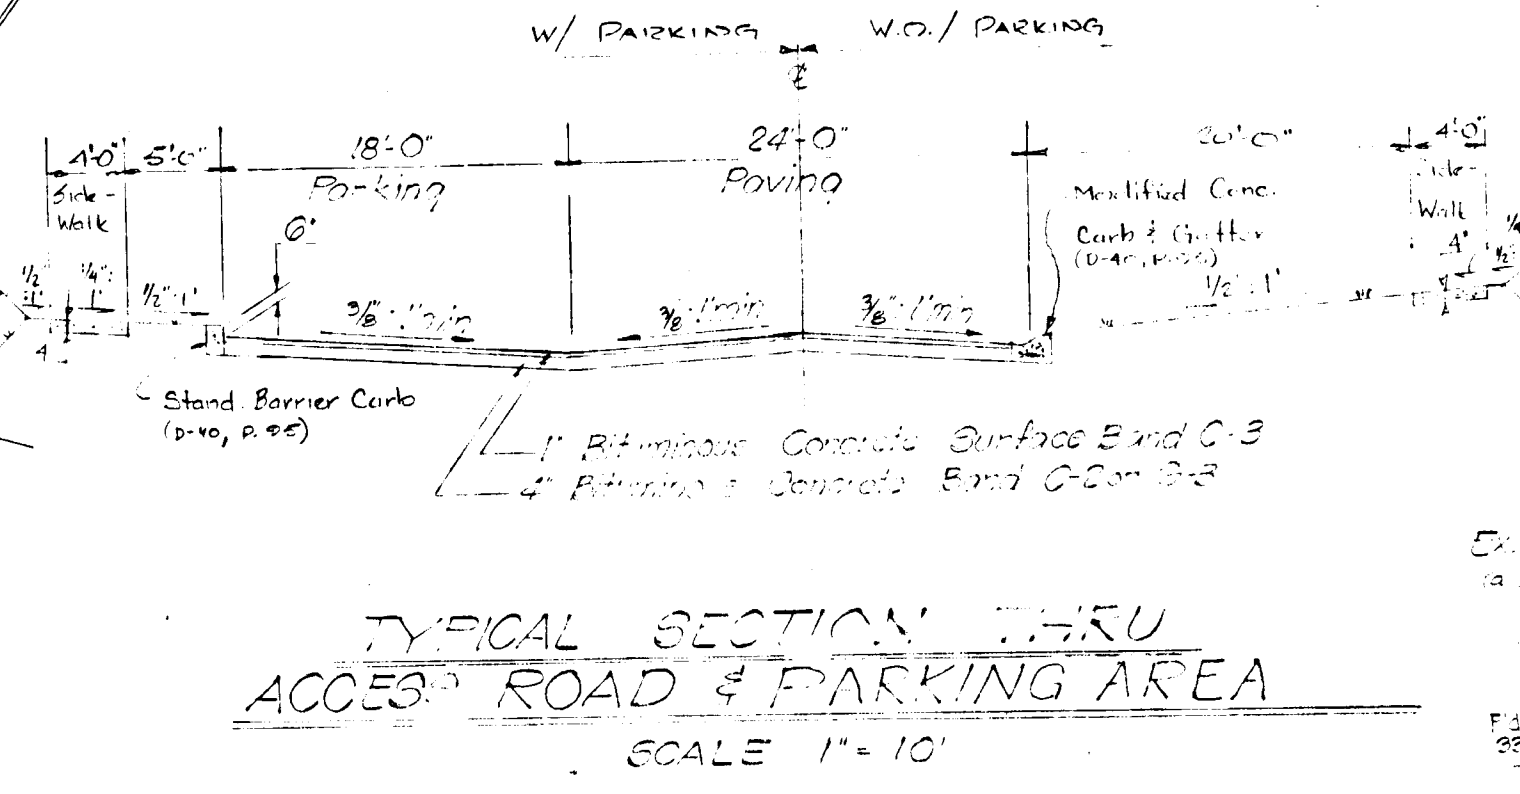 W/ PARKING
W.O./ PARKING
℄
4'-0"
5'-0"
18'-0"
24'-0"
20'-0"
4'-0"
Side-
Walk
Parking
Paving
Modified Conc.
Curb & Gutter
(D-40,
Side-
Walk
6"
4"
1/2"
:1'
1/4":
1'
1/2":1'
3/8":1'min
3/8:1'min
3/8":1'min
1/2":1'
4
Stand. Barrier Curb
(D-40, P. 95)
1" Bituminous Concrete Surface Band C-3
4" Bituminous Concrete Band C-2 or
TYPICAL SECTION THRU
ACCESS ROAD & PARKING AREA
SCALE 1" = 10'